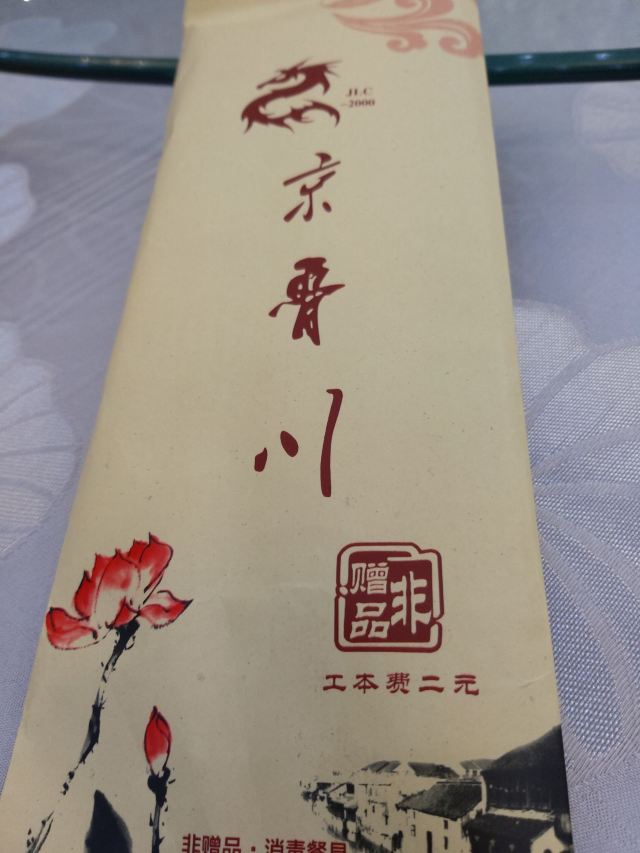 JLC
-2000
京
川
非赠品
工本费二元
非赠品·消毒餐具